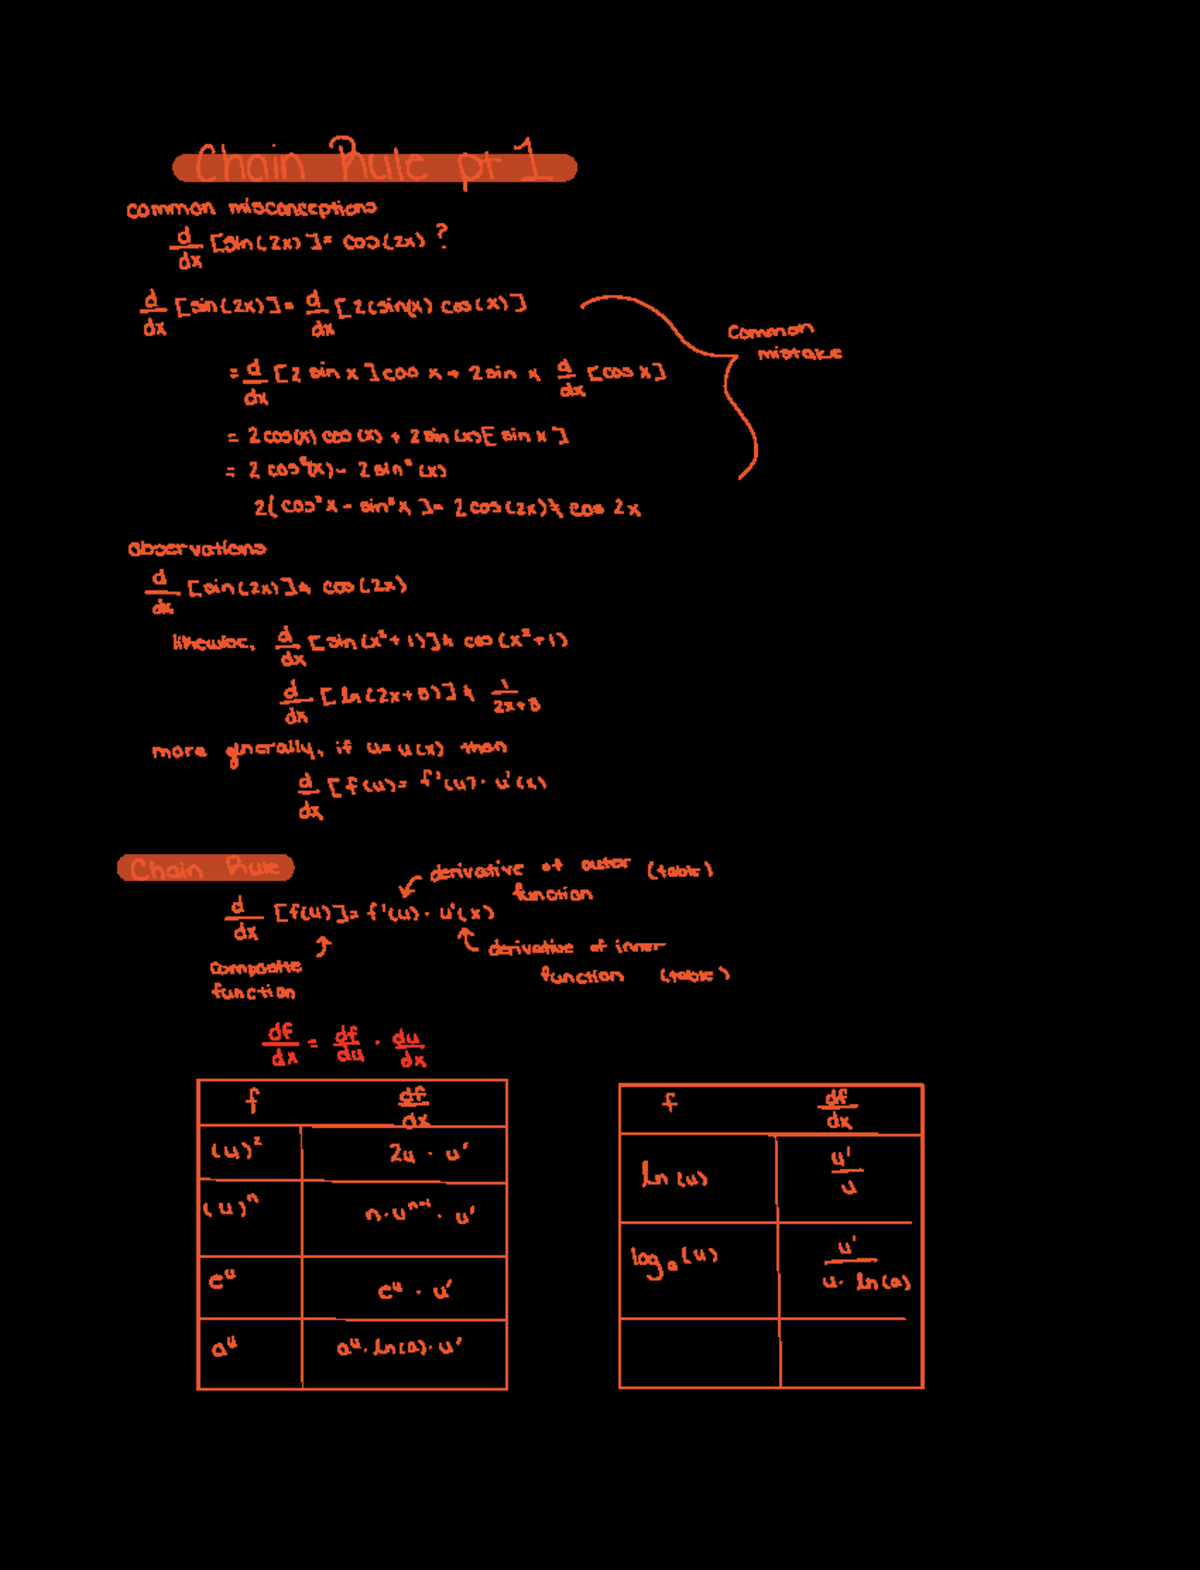 Chain Rule pt 1
common misconceptions
d/dx [sin(2x)] = cos(2x) ?
d/dx [sin(2x)] = d/dx [2(sin(x) cos(x)]
common
mistake
= d/dx [2 sin x] cos x + 2 sin x d/dx [cos x]
= 2cos(x) cos(x) + 2 sin(x)[sin x]
= 2 cos²(x) - 2 sin²(x)
2(cos²x - sin²x] = 2cos(2x) ≠ cos 2x
observations
d/dx [sin(2x)] ≠ cos(2x)
likewise, d/dx [sin(x²+1)] ≠ cos(x²+1)
d/dx [ln(2x+3)] ≠ 1/(2x+3)
more generally, if u = u(x) then
d/dx [f(u) = f'(u) · u'(x)
Chain Rule
derivative of outer (table)
function
d/dx [f(u)] = f'(u) · u'(x)
derivative of inner
function (table)
composite
function
df/dx = df/du · du/dx
f df/dx
(u)² 2u · u'
(u)ⁿ n·uⁿ⁻¹ · u'
eᵘ eᵘ · u'
aᵘ aᵘ · ln(a) · u'
f df/dx
ln(u) u'/u
logₐ(u) u'/(u · ln(a))